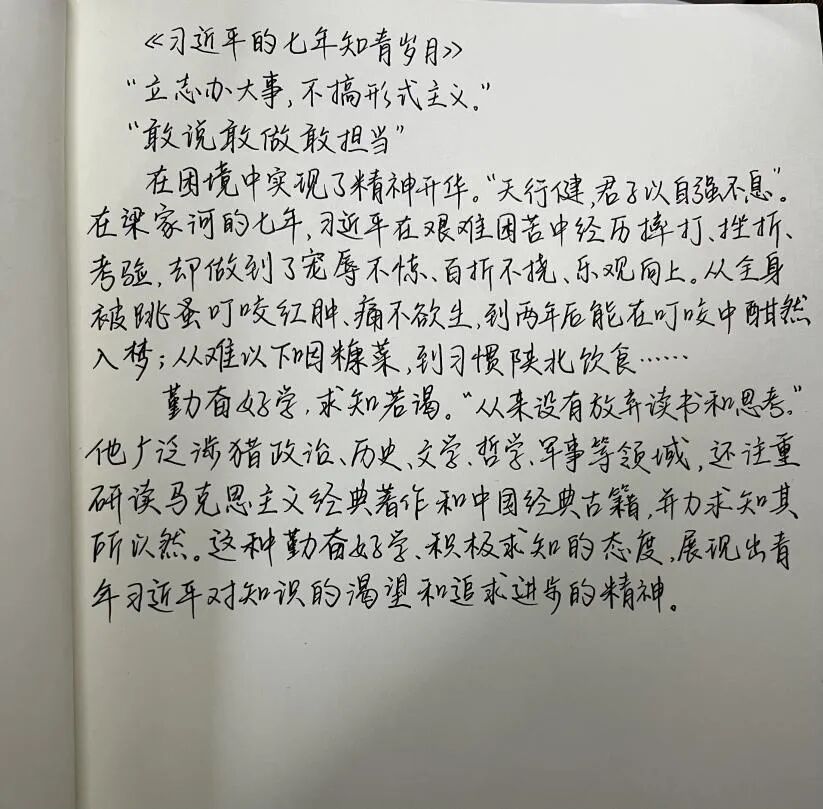 《习近平的七年知青岁月》
“立志办大事,不搞形式主义。”
“敢说敢做敢担当”
在困境中实现了精神升华。“天行健,君子以自强不息”。
在梁家河的七年,习近平在艰难困苦中经历摔打、挫折、
考验,却做到了宠辱不惊、百折不挠、乐观向上。从全身
被跳蚤叮咬红肿、痛不欲生,到两年后能在叮咬中酣然
入梦;从难以下咽糠菜,到习惯陕北饮食……
勤奋好学,求知若渴。“从来没有放弃读书和思考。”
他广泛涉猎政治、历史、文学、哲学、军事等领域,还注重
研读马克思主义经典著作和中国经典古籍,并力求知其
所以然。这种勤奋好学、积极求知的态度,展现出青
年习近平对知识的渴望和追求进步的精神。